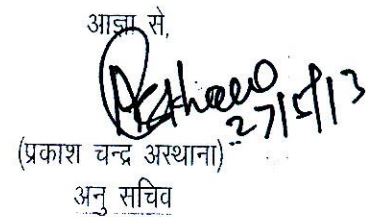 आज्ञा से,
27/5/13
(प्रकाश चन्द्र अस्थाना)
अनु सचिव